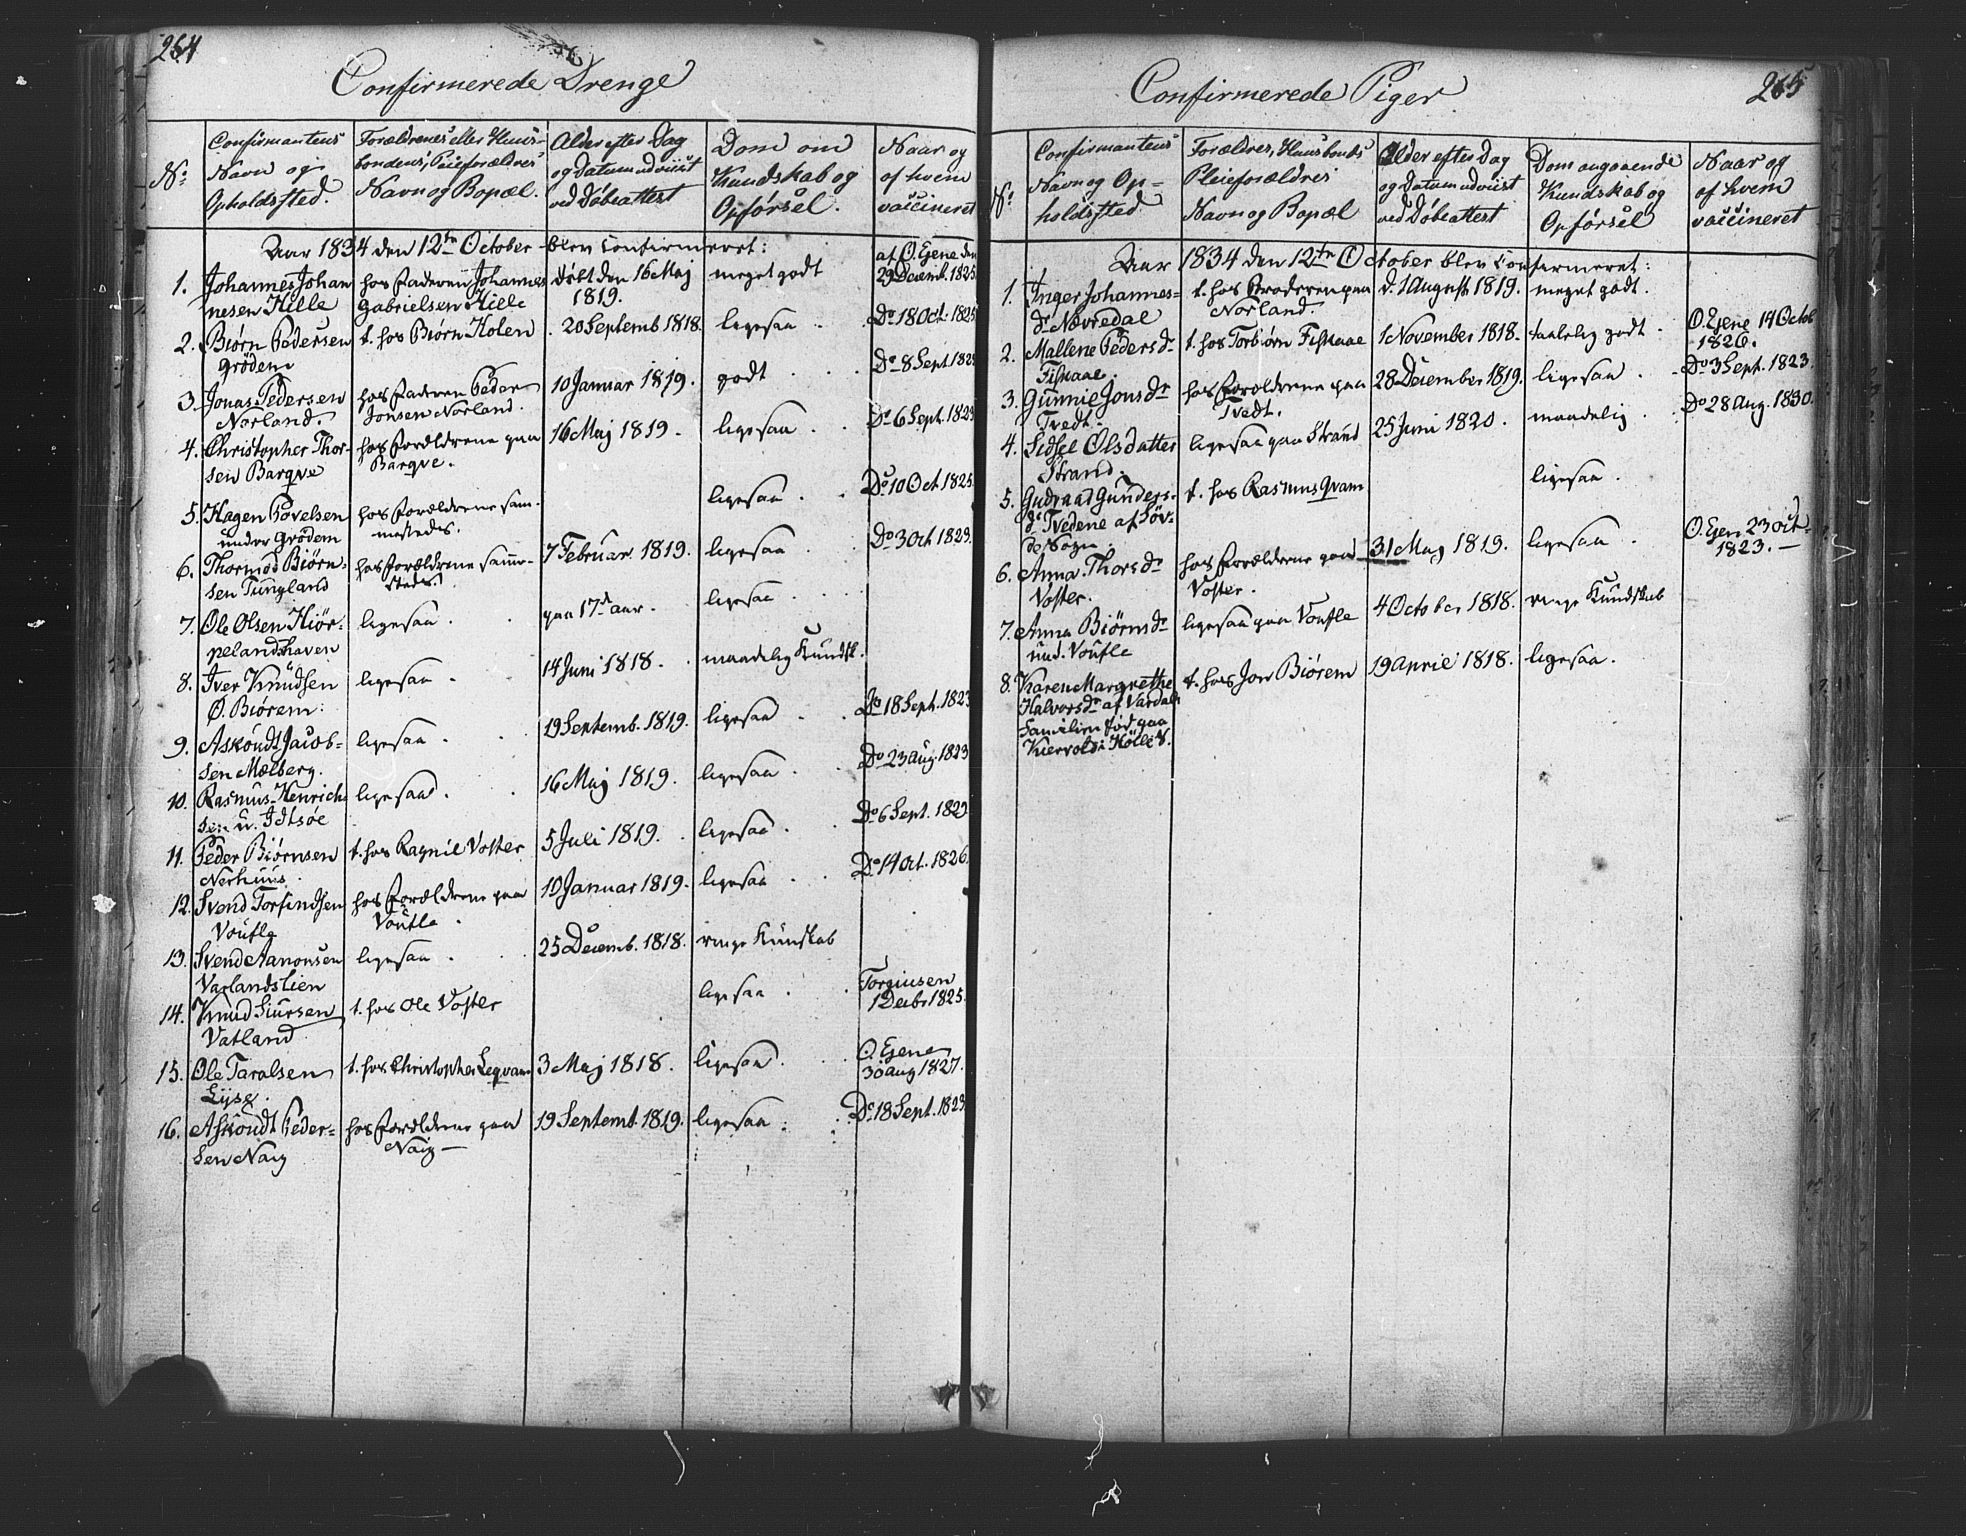 264
Confirmerede Drenge
No
Confirmantens
Navn og
Opholdssted.
Forældrenes eller Huus-
bondens, Pleieforældres
Navn og Bopæl.
Alder efter Dag
og Datum udviist
ved Døbeattest
Dom om
Kundskab og
Opførsel.
Naar og
af hvem
vaccineret
Aar 1834 den 12te October blev confirmeret:
1. Johannes Johan
nesen Hille
hos Faderen Johannes
Gabrielsen Hille
døbt den 16 Maj
1819.
meget godt
af O. Eyene den
29 Decemb. 1825.
2. Biørn Pedersen
Grødem
t. hos Biørn Holen
20 Septemb 1818.
ligesaa
Do 18 Oct. 1825
3. Jonas Pedersen
Norland.
hos Faderen Peder
Jonsen Norland.
10 Januar 1819.
godt
Do 8 Sept 1823
4. Christopher Thor-
sen Barqve
hos Forældrene paa
Barqve.
16 Maj 1819.
ligesaa
Do 6 Sept. 1823
5. Hagen Povelsen
under Grødem
hos Forældrene sam-
mesteds.
ligesaa
Do 10 Oct 1825.
6. Thormod Biørn-
sen Tungland
hos Forældrene samme-
steds
7 Februar 1819.
ligesaa
Do 3 Oct 1829.
7. Ole Olsen Hiør-
pelandshaven
ligesaa
paa 17d aar.
ligesaa
8. Iver Knudsen
Ø. Biørem:
ligesaa
14 Juni 1818.
maadelig Kundsk.
9. Askoudt Jacob-
sen Mælberg.
ligesaa
19 Septemb. 1819.
ligesaa
Do 18 Sept. 1823
10. Rasmus Henrich-
sen u. Idtsøe
ligesaa
16 Maj 1819.
ligesaa
Do 23 Aug. 1823
11. Peder Biørnsen
Nerhuus.
t. hos Ragnil Voster
5 Juli 1819.
ligesaa
Do 6 Sept. 1823
12. Svend Torfindsen
Voufle
hos Forældrene paa
Voufle
10 Januar 1819.
ligesaa
Do 14 Oct. 1826.
13. Svend Aanonsen
Varlandslien
ligesaa
25 Decemb. 1818.
ringe Kundskab
14. Knud Siursen
Vatland
t. hos Ole Voster
ligesaa
Torgiusen
1 Decbr 1825.
15. Ole Taralsen
Lyse.
t. hos Christopher Leqvam
3 Maj 1818.
ligesaa
O. Eyene
30 Aug 1827.
16. Askoudt Peder-
sen Naig
hos Forældrene paa
Naig
19 Septemb. 1819.
ligesaa
Do 18 Sept. 1823
265
Confirmerede Piger.
No
Confirmantens
Navn og Op-
holdsted.
Forældres, Huusbonds
Pleieforældres
Navn og Bopæl
Alder efter Dag
og Datum udviist
ved Døbeattest
Dom angaaende
Kundskab og
Opførsel
Naar og
af hvem
vaccineret
Aar 1834 den 12te October blev confirmeret:
1. Inger Johannes-
dr Nævredal
t. hos Broderen paa
Norland.
d. 1 August 1819.
meget godt.
2. Mallene Pedersdr
Fiskaae.
t. hos Torbiørn Fiskaae
1 November 1818.
taalelig godt
O. Eyene 14 Octob
1826.
3. Gunnie Jonsdr
Tvedt.
hos Forældrene paa
Tvedt.
28 December 1819.
ligesaa
Do 3 Sept. 1823.
4. Sidsel Olsdatter
Strand.
ligesaa paa Strand
25 Juni 1820.
maadelig
Do 28 Aug. 1830
5. Gudraad Gunders-
dr Tvedene af Søv-
de Sogn.
t. hos Rasmus Qvam
ligesaa
6. Anna Thorsdr
Voster.
hos Forældrene paa
Voster.
31 Maj 1819.
ligesaa
O. Eyen 23 Oct
1823.
7. Anna Biørnsdr
und. Voufle
ligesaa paa Voufle
4 October 1818.
ringe Kundskab
8. Karen Margrethe
Halvorsdr af Vardals
Familien fød paa
t. hos Jon Biørem
19 April 1818.
ligesaa.